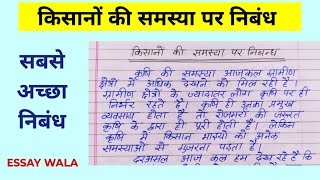 किसानों की समस्या पर निबंध
सबसे
अच्छा
निबंध
ESSAY WALA
किसानों की समस्या पर निबन्ध
कृषि की समस्या आजकल ग्रामीण
क्षेत्रों में अधिक देखने को मिल रही है।
ग्रामीण क्षेत्रों के ज्यादातर लोग कृषि पर ही
निर्भर रहते है। कृषि ही उनका प्रमुख
व्यवसाय होता है तो रोजमर्रा की जरूरत
कृषि के द्वारा ही पूरी होती है। लेकिन
कृषि में किसान भाइयो को अनेक
समस्याओं से गुजरना पड़ता है।
दरअसल आज कल हम देख रहे है कि